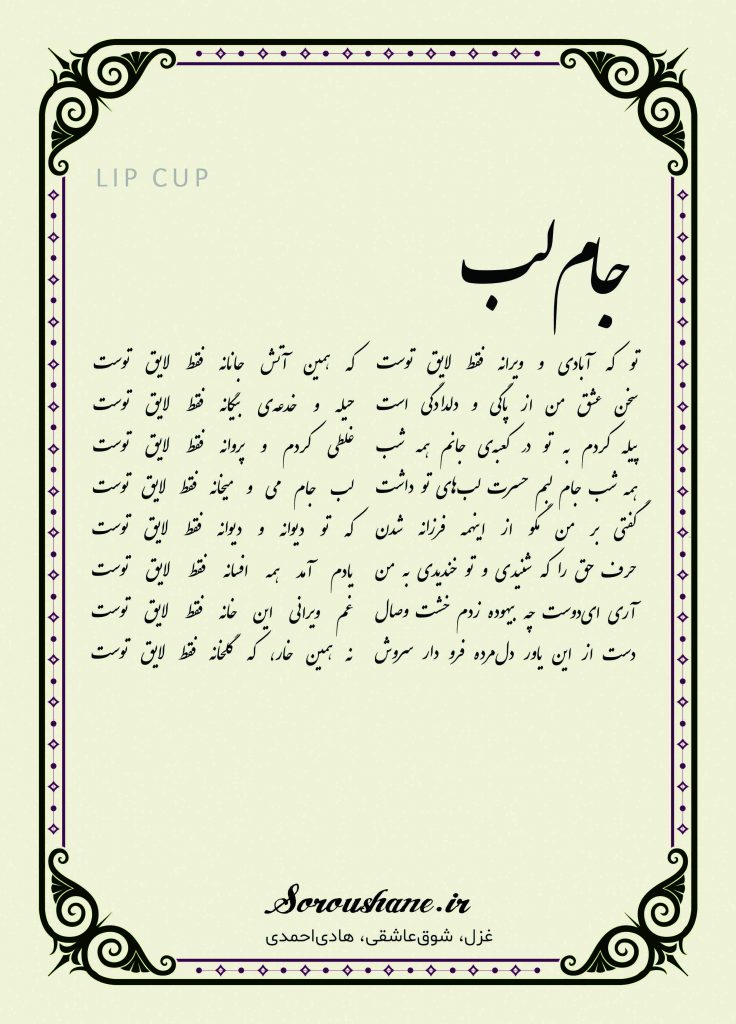 LIP CUP
جام لب
تو که آبادی و ویرانه فقط لایق توست که همین آتش جانانه فقط لایق توست
سخن عشق من از پاکی و دلدادگی است حیله و خدعه‌ی بیگانه فقط لایق توست
پیله کردم به تو در کعبه‌ی جانم همه شب غلطی کردم و پروانه فقط لایق توست
همه شب جام لبم حسرت لب‌های تو داشت لب جام می و میخانه فقط لایق توست
گفتی بر من مگو از اینهمه فرزانه شدن که تو دیوانه و دیوانه فقط لایق توست
حرف حق را که شنیدی و تو خندیدی به من یادم آمد همه افسانه فقط لایق توست
آری ای‌دوست چه بیهوده زدم خشت وصال غم ویرانی این خانه فقط لایق توست
دست از این یاور دل‌مرده فرو دار سروش نه همین خار، که گلخانه فقط لایق توست
Soroushane.ir
غزل، شوق‌عاشقی، هادی‌احمدی